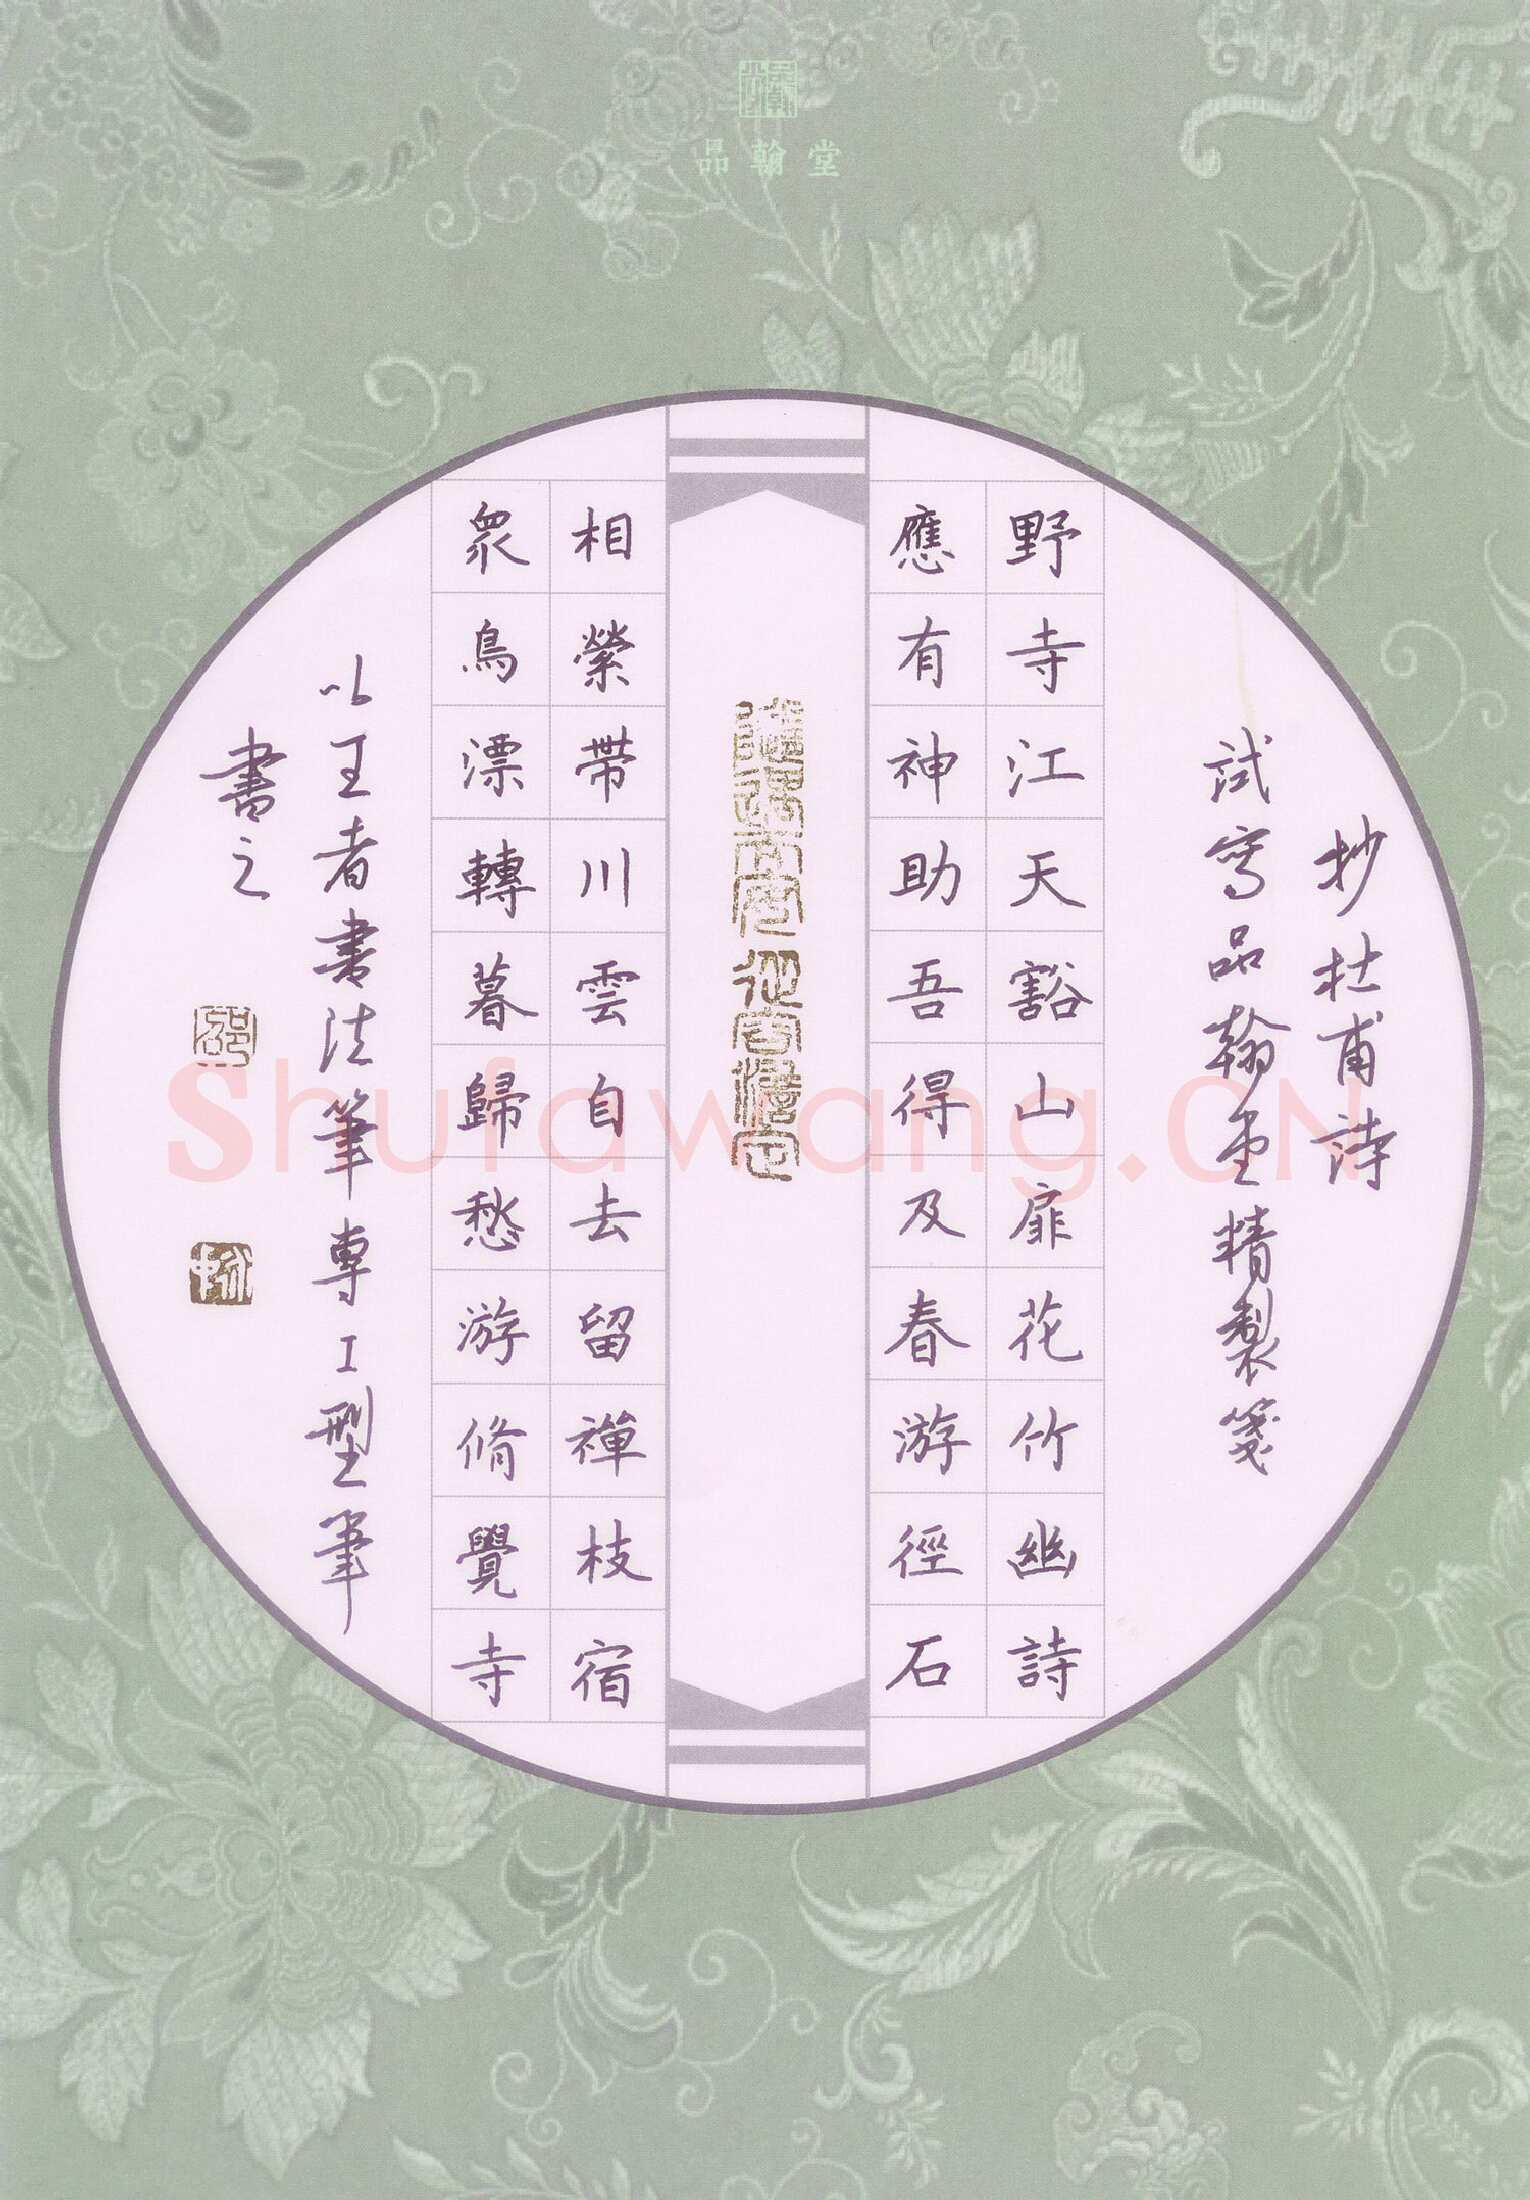 品翰堂
抄杜甫詩
試寫品翰堂精製箋
野寺江天豁山扉花竹幽詩
應有神助吾得及春游徑石
相縈帶川雲自去留禪枝宿
衆鳥漂轉暮歸愁游脩覺寺
以王者書法筆專工型筆
書之
Shufawang.CN